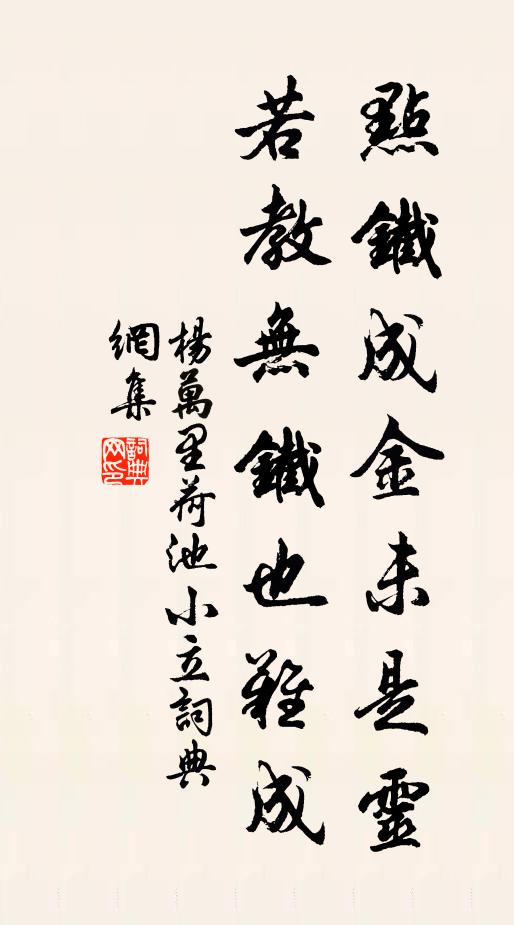 點鐵成金未是靈
若教無鐵也難成
楊萬里荷池小立詞典
網集
詞典網印